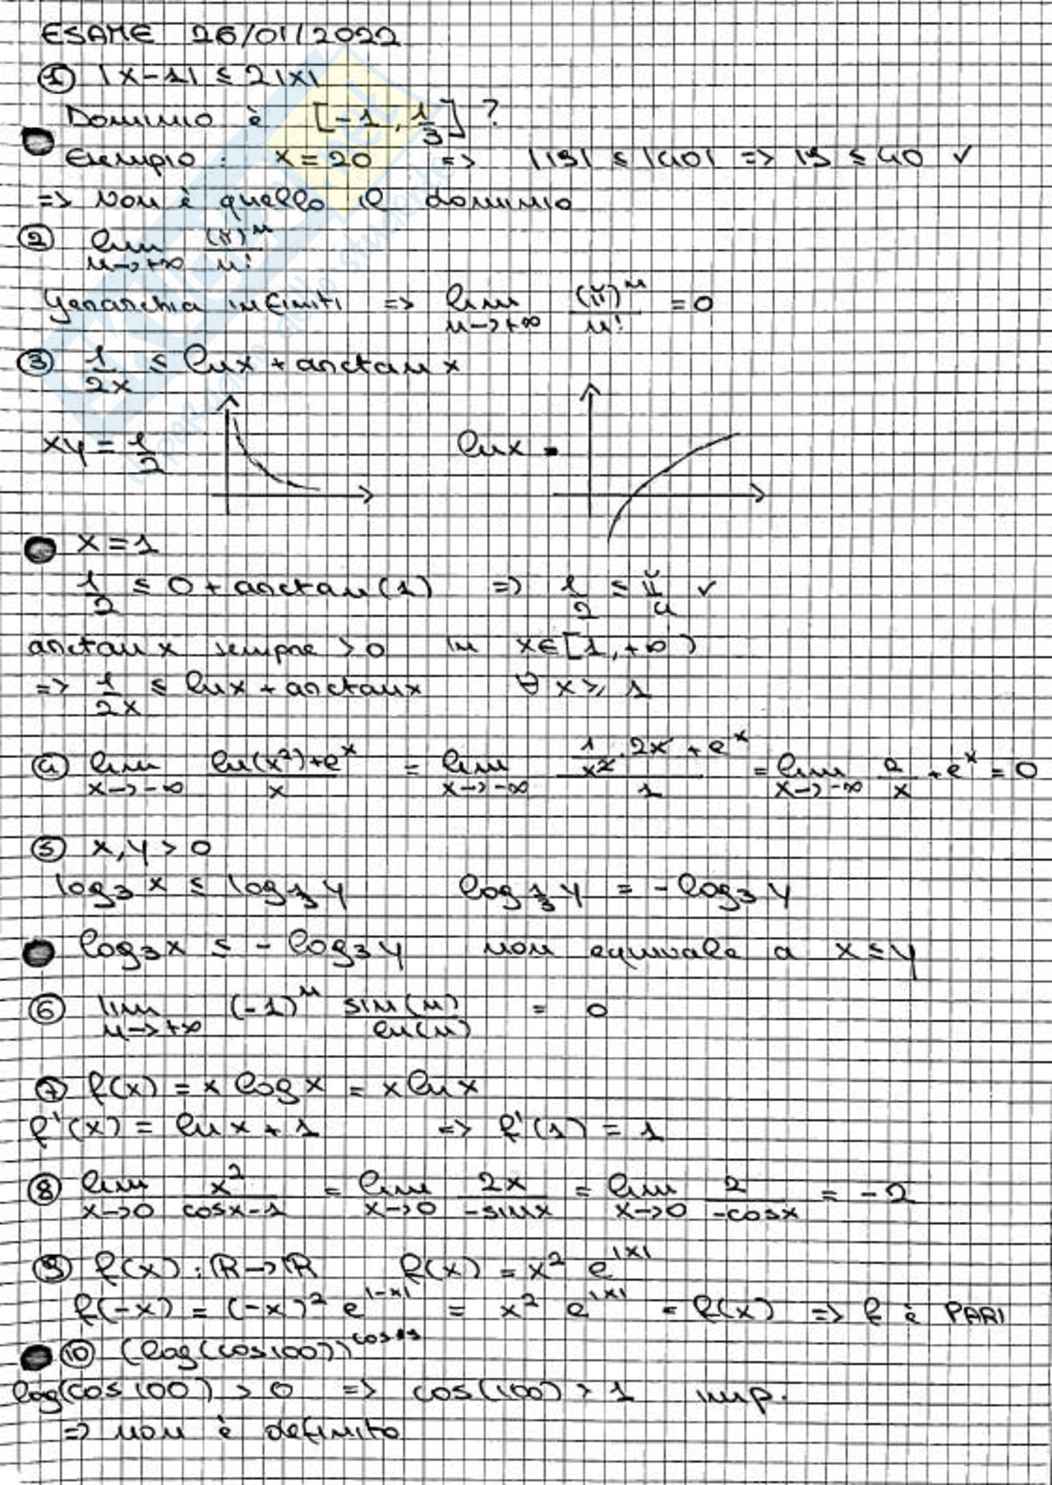 ESAME 26/01/2022
① |x-1| ≤ 2|x|
Dominio è [-1, 1/3] ?
Esempio: x=20 => |19| ≤ |40| => 19 ≤ 40 ✓
=> Non è quello il dominio
② lim n->+∞ (π)^n / n!
Gerarchia infiniti => lim n->+∞ (π)^n / n! = 0
③ 1/2x ≤ lnx + arctan x
xy = 1/2 lnx
x=1
1/2 ≤ 0 + arctan(1) => 1/2 ≤ π/4 ✓
arctan x sempre >0 in x∈[1,+∞)
=> 1/2x ≤ lnx + arctanx ∀ x ≥ 1
④ lim x->-∞ (ln(x²)+e^x)/x = lim x->-∞ (1/x² · 2x + e^x)/1 = lim x->-∞ 2/x + e^x = 0
⑤ x,y > 0
log₃ x ≤ log_1/3 y log_1/3 y = -log₃ y
log₃x ≤ - log₃y non equivale a x≤y
⑥ lim n->+∞ (-1)^n sin(n)/ln(n) = 0
⑦ f(x) = x log x = x ln x
f'(x) = ln x + 1 => f'(1) = 1
⑧ lim x->0 x²/(cosx-1) = lim x->0 2x/-sinx = lim x->0 2/-cosx = -2
⑨ f(x): ℝ->ℝ f(x) = x² e^|x|
f(-x) = (-x)² e^|-x| = x² e^|x| = f(x) => f è PARI
⑩ (log(cos100))
log(cos100) > 0 => cos(100) > 1 imp.
=> non è definito